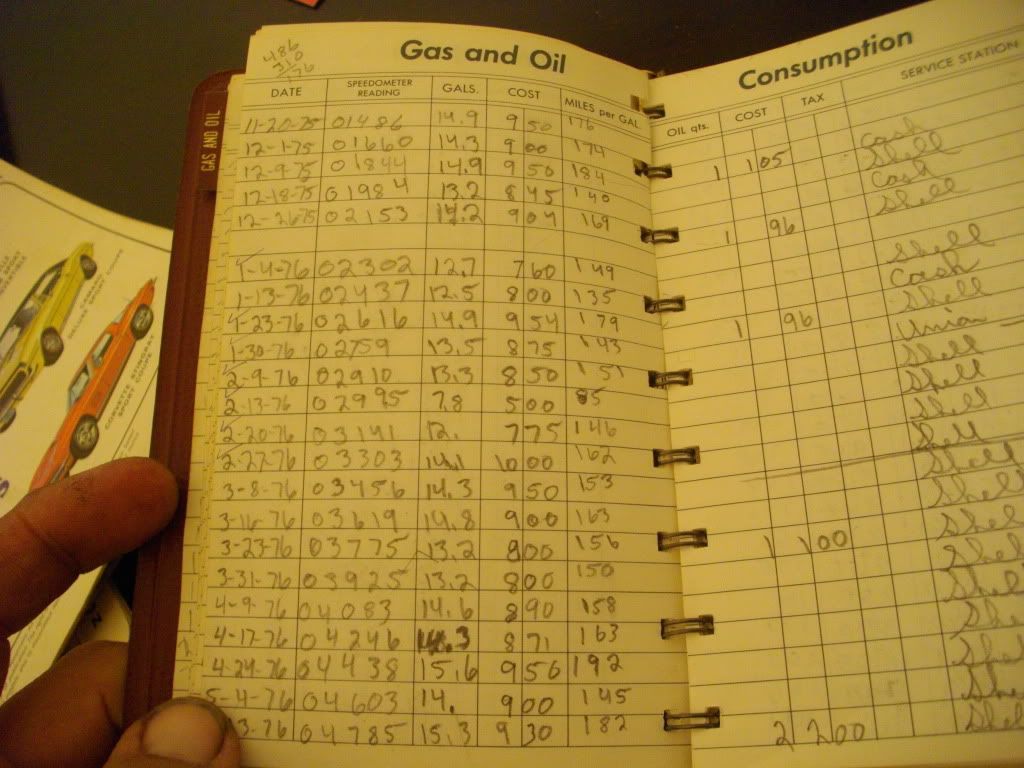 GAS AND OIL
CORVETTE STINGRAY
COUPE
486
310
176
Gas and Oil
DATE SPEEDOMETER READING GALS. COST MILES per GAL.
11-20-75 01486 14.9 9 50 176
12-1-75 01660 14.3 9 00 174
12-9-75 01844 14.9 9 50 184
12-18-75 01984 13.2 8 45 140
12-26-75 02153 14.2 9 04 169
1-4-76 02302 12.7 7 60 149
1-13-76 02437 12.5 8 00 135
1-23-76 02616 14.9 9 54 179
1-30-76 02759 13.5 8 75 143
2-9-76 02910 13.3 8 50 151
2-13-76 02995 7.8 5 00 85
2-20-76 03141 12. 7 75 146
2-27-76 03303 14.1 10 00 162
3-8-76 03456 14.3 9 50 153
3-16-76 03619 14.8 9 00 163
3-23-76 03775 13.2 8 00 156
3-31-76 03925 13.2 8 00 150
4-9-76 04083 14.6 8 90 158
4-17-76 04246 14.3 8 71 163
4-24-76 04438 15.6 9 50 192
5-4-76 04603 14. 9 00 145
3-76 04785 15.3 9 30 182
Consumption
OIL qts. COST TAX SERVICE STATION
Cash
1 1 05 Shell
Cash
Shell
1 96
Shell
Cash
Shell
1 96 Union
Shell
Shell
Shell
Shell
Shell
Shell
Shel
1 1 00 Shel
Shel
She
She
She
She
2 2 00 Shel